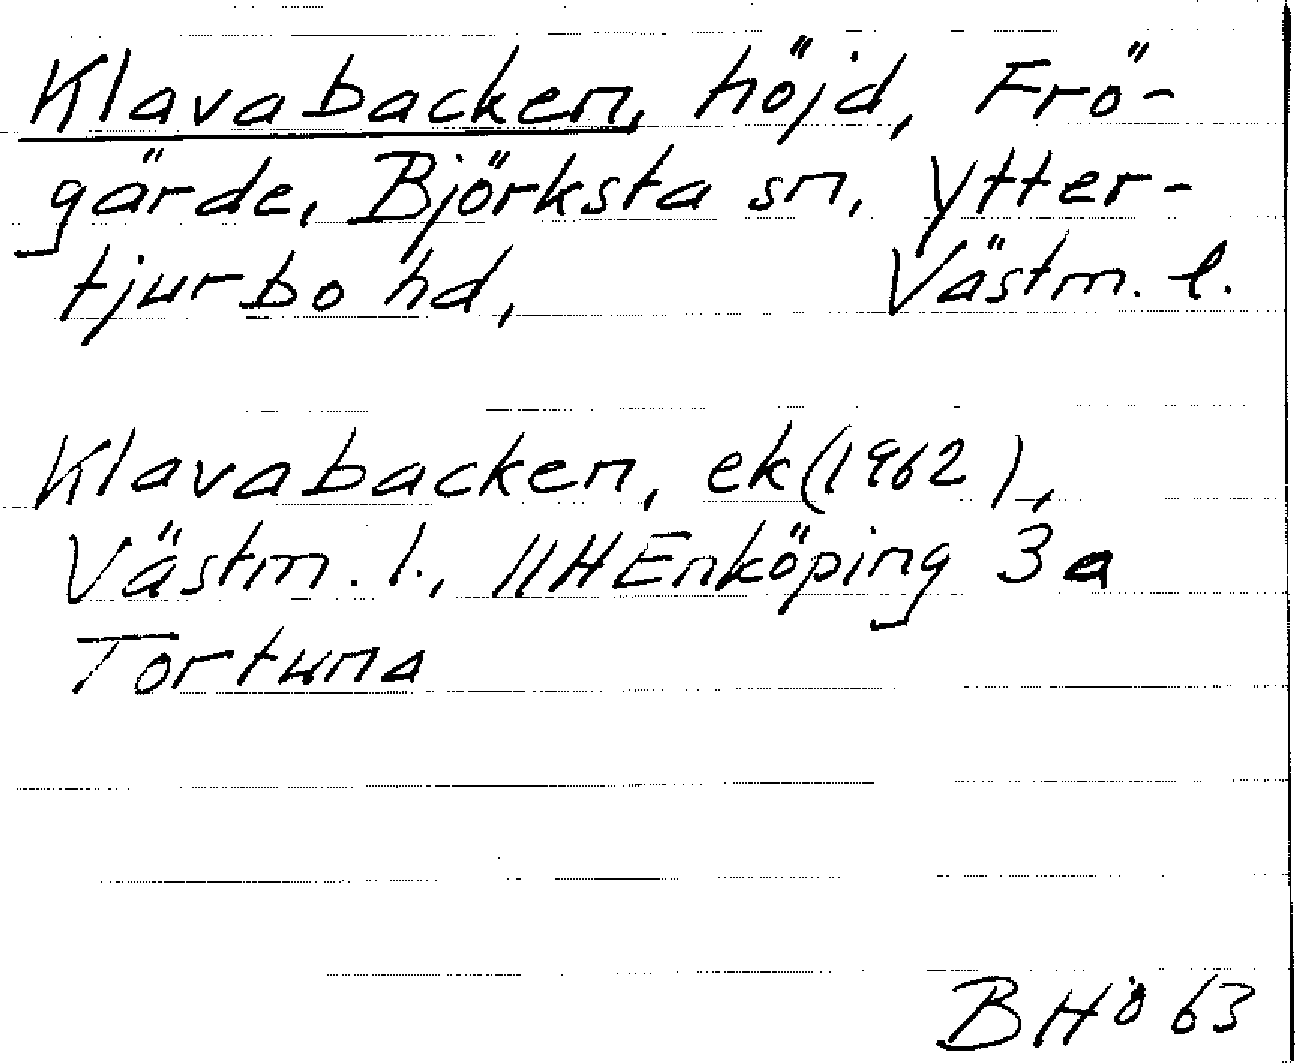 Klavabacken, höjd, Frö-
gärde, Björksta sn, Ytter-
tjurbo hd, Västm. l.
Klavabacken, ek (1962),
Västm. l., 11H Enköping 3a
Tortuna
BHö 63